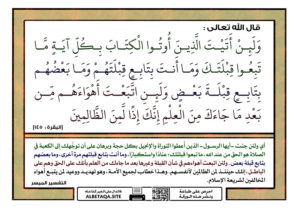 قال الله تعالى :
وَلَئِنْ أَتَيْتَ الَّذِينَ أُوتُوا الْكِتَابَ بِكُلِّ آيَةٍ مَّا
تَبِعُوا قِبْلَتَكَ وَمَا أَنتَ بِتَابِعٍ قِبْلَتَهُمْ وَمَا بَعْضُهُم
بِتَابِعٍ قِبْلَةَ بَعْضٍ وَلَئِنِ اتَّبَعْتَ أَهْوَاءَهُم مِّن
بَعْدِ مَا جَاءَكَ مِنَ الْعِلْمِ إِنَّكَ إِذًا لَّمِنَ الظَّالِمِينَ
[البقرة : ١٤٥]
ولئن جئت -أيها الرسول- الذين أُعطوا التوراة والإنجيل بكل حجة وبرهان على أن توجُّهك إلى الكعبة في
الصلاة هو الحق من عند الله، ما تبعوا قبلتك؛ عنادًا واستكبارًا، وما أنت بتابع قبلتهم مرة أخرى، وما بعضهم
بتابع قبلة بعض. ولئن اتبعت أهواءهم في شأن القبلة وغيرها بعد ما جاءك من العلم بأنك على الحق وهم على
الباطل، إنك حينئذ لمن الظالمين لأنفسهم. وهذا خطاب لجميع الأمة، وهو تهديد ووعيد لمن يتبع أهواء
المخالفين لشريعة الإسلام.
التفسير الميسر
ALBETAQA.SITE